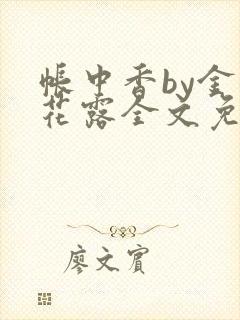 帐中香by金
花露全文免
廖文宾